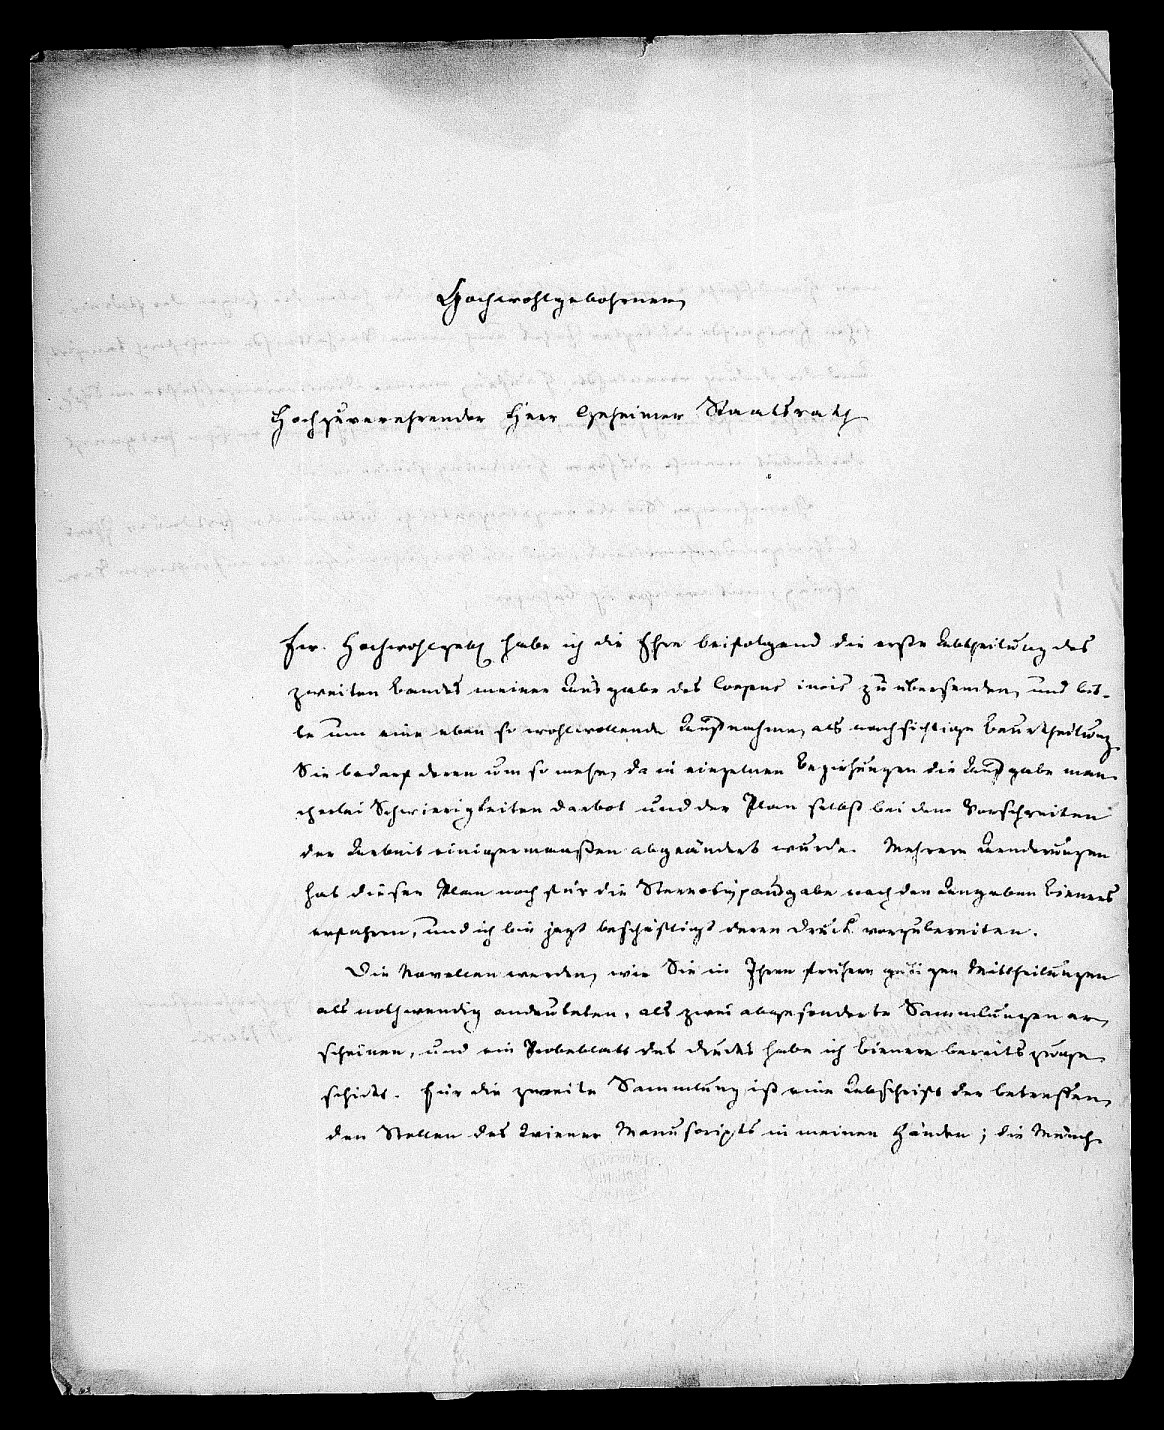 Hochwohlgebohrner,
Hochzuverehrender Herr Geheimer Staatsrath
Ew. Hochwohlgeb. habe ich die Ehre beifolgend die erste Abtheilung des
zweiten Bandes meiner Ausgabe des Corpus iuris zu übersenden, und bit-
te um eine eben so wohlwollende Aufnahme, als nachsichtige Beurtheilung.
Sie bedarf deren um so mehr, da in einzelnen Beziehungen die Ausgabe man-
cherlei Schwierigkeiten darbot und der Plan selbst bei dem Vorschreiten
der Arbeit einigermaaßen abgeändert wurde. Mehrere Aenderungen
hat dieser Plan noch für die Stereotypausgabe nach den Angaben Bieners
erfahren, und ich bin jezt beschäftigt deren Druck vorzubereiten.
Die Novellen werden, wie Sie in Ihren frühern gütigen Mittheilungen
als nothwendig andeuteten, als zwei abgesonderte Sammlungen er-
scheinen, und ein Probeblatt des Drucks habe ich Bienern bereits zuge-
schickt. Für die zweite Sammlung ist eine Abschrift der betreffen-
den Stellen des Wiener Manuscripts in meinen Händen; die Münch-